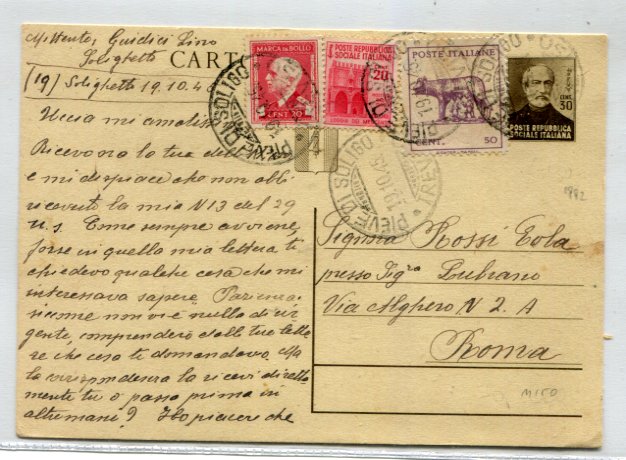 Mittente, Guidici Lino
Solighetto
(19) Solighetto 19.10.4
CARTO
MARCA DA BOLLO
CENT 20
POSTE REPUBBLICA
SOCIALE ITALIANA
20
LOGGIA DEI MERCANTI
POSTE ITALIANE
CENT. 50
CENT. 30
POSTE REPUBBLICA
SOCIALE ITALIANA
PIEVE DI SOLIGO
PIEVE DI SOLIGO
PIEVE DI SOLIGO 19.10.4
4
1942
Uccia mi amatiss
Ricevono la tua del
e mi dispiace che non abbi
ricevuto la mia N 13 del 29
u.s. Come sempre avviene,
forse in quella mia lettera ti
chiedevo qualche cosa che mi
interessava sapere. Pazienza
siccome non vi è nulla di ur
gente, comprenderò dalle tue lette
re che cosa ti domandavo. Ma
la corrispondenza la ricevi diretta
mente tu o passa prima in
altre mani? Ho piacere che
Signora Rossi Iola
presso Sigra Lubrano
Via Alghero N 2. A
Roma
M150